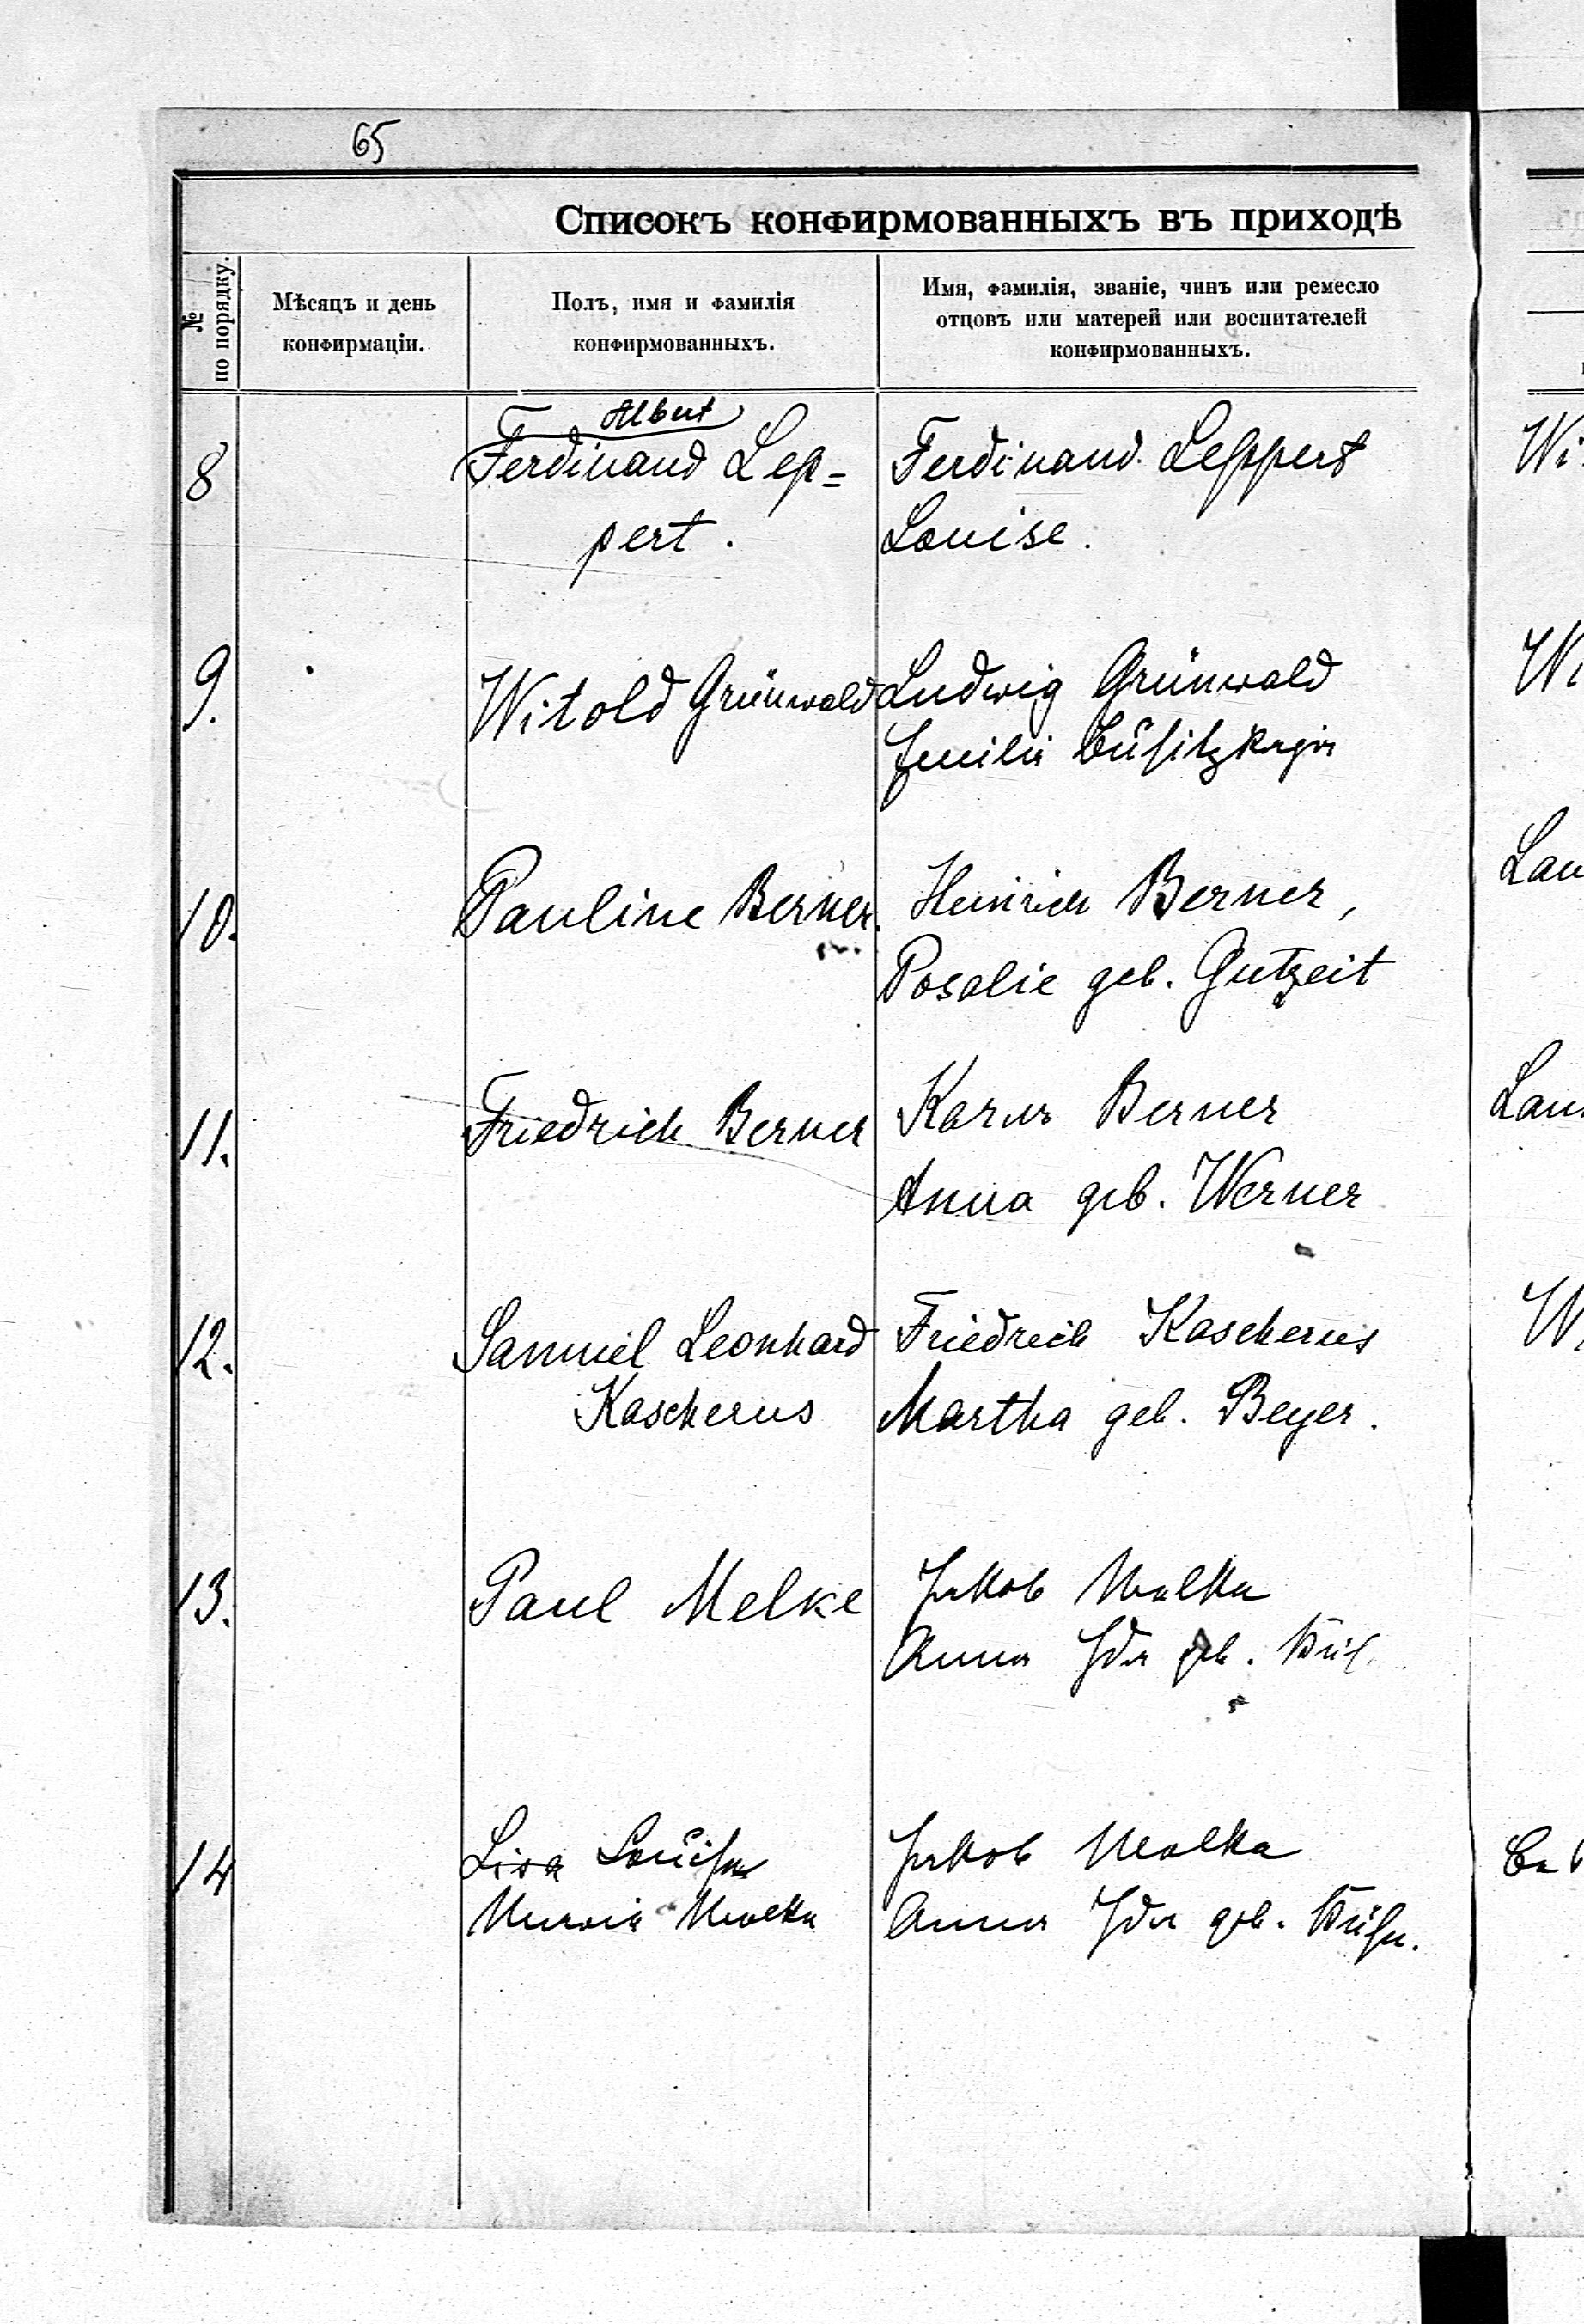 65
Списокъ конфирмованныхъ въ приходѣ
№ по порядку.
Мѣсяцъ и день
конфирмаціи.
Полъ, имя и фамилія
конфирмованныхъ.
Имя, фамилія, званіе, чинъ или ремесло
отцовъ или матерей или воспитателей
конфирмованныхъ.
Albert
8 Ferdinand Lep= Ferdinand Leppert Wi
pert. Louise.
9. Witold Grünwald Ludwig Grünwald Wi
Emilie
10. Pauline Berner. Heinrich Berner, Lau
Rosalie geb. Gutzeit
11. Friedrich Berner Berner Lau
Anna geb. Werner
12. Samuel Leonhard Friedrich Kascherus W
Kascherus Martha geb. Beyer.
13. Paul Melke Jakob Melke
Anna Ida geb.
14 Lisa Louise Jakob Melke
Maria Melke Anna Ida geb.